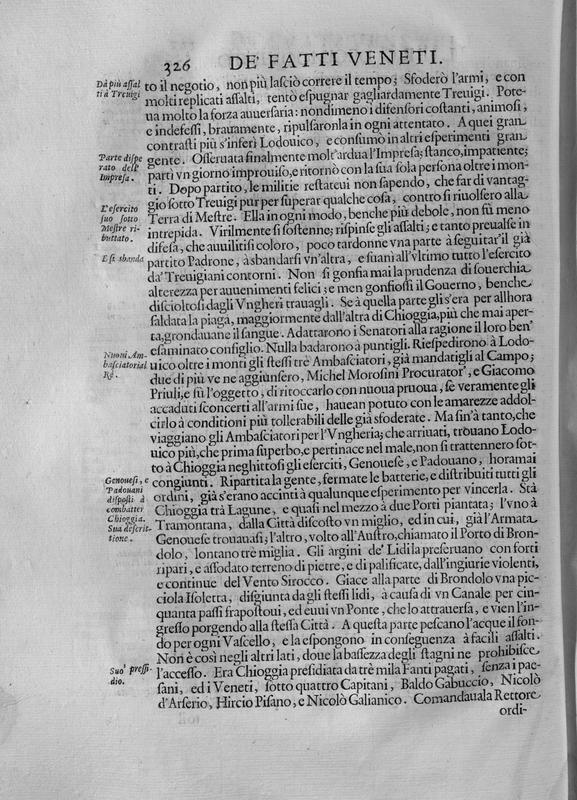 326 DE' FATTI VENETI.
Dà più assal
ti à Treuigi
to il negotio, non più lasciò correre il tempo; Sfoderò l'armi, e con
molti replicati assalti, tentò espugnar gagliardamente Treuigi. Pote-
ua molto la forza auuersaria: nondimeno i difensori costanti, animosi,
e indefessi, brauamente, ripulsaronla in ogni attentato. A quei gran
contrasti più s'inferì Lodouico, e consumò in altri esperimenti gran
Parte dispe
rato dell'
Impresa.
gente. Osseruata finalmente molt'ardua l'Impresa; stanco, impatiente;
partì vn giorno improuiso, e ritornò con la sua sola persona oltre i mon-
ti. Dopo partito, le militie restateui non sapendo, che far di vantag-
L'esercito
suo sotto
Mestre ri-
buttato.
gio sotto Treuigi pur per superar qualche cosa, contro si riuolsero alla
Terra di Mestre. Ella in ogni modo, benche più debole, non fù meno
intrepida. Virilmente si sostenne; rispinse gli assalti; e tanto preualse in
difesa, che auuilitisi coloro, poco tardonne vna parte à seguitar'il già
E si sbanda
partito Padrone, à sbandarsi vn'altra, e suanì all'vltimo tutto l'esercito
da' Treuigiani contorni. Non si gonfia mai la prudenza di souerchia
alterezza per auuenimenti felici; e men gonfiossi il Gouerno, benche
discioltosi dagli Vngheri trauagli. Se à quella parte gli s'era per allhora
saldata la piaga, maggiormente dall'altra di Chioggia, più che mai aper-
ta, grondauane il sangue. Adattarono i Senatori alla ragione il loro ben'
esaminato consiglio. Nulla badarono à puntigli. Riespedirono à Lodo-
Nuoui Am-
basciatorial
Rè.
uico oltre i monti gli stessi trè Ambasciatori, già mandatigli al Campo;
due di più ve ne aggiunsero, Michel Morosini Procurator', e Giacomo
Priuli, e fù l'oggetto, di ritoccarlo con nuoua pruoua, se veramente gli
accaduti sconcerti all'armi sue, hauean potuto con le amarezze addol-
cirlo à conditioni più tollerabili delle già sfoderate. Ma fin'à tanto, che
viaggiano gli Ambasciatori per l'Vngheria; che arriuati, trouano Lodo-
uico più, che prima superbo, e pertinace nel male, non si trattennero sot-
to à Chioggia neghittosi gli eserciti, Genouese, e Padouano, horamai
Genouesi, e
Padouani
disposti à
combatter
Chioggia.
Sua descrit-
tione.
congiunti. Ripartita la gente, fermate le batterie, e distribuiti tutti gli
ordini, già s'erano accinti à qualunque esperimento per vincerla. Stà
Chioggia trà Lagune, e quasi nel mezzo à due Porti piantata; l'vno à
Tramontana, dalla Città discosto vn miglio, ed in cui, già l'Armata
Genouese trouauasi; l'altro, volto all'Austro, chiamato il Porto di Bron-
dolo, lontano trè miglia. Gli argini de' Lidi la preseruano con forti
ripari, e assodato terreno di pietre, e di palificate, dall'ingiurie violenti,
e continue del Vento Sirocco. Giace alla parte di Brondolo vna pic-
ciola Isoletta, disgiunta dagli stessi lidi, à causa di vn Canale per cin-
quanta passi frapostoui, ed euui vn Ponte, che lo attrauersa, e vien l'in-
gresso porgendo alla stessa Città. A questa parte pescano l'acque il fon-
do per ogni Vascello, e la espongono in conseguenza à facili assalti.
Non è così negli altri lati, doue la bassezza degli stagni ne prohibisce
Suo presi-
dio.
l'accesso. Era Chioggia presidiata da trè mila Fanti pagati, senza i pae-
sani, ed i Veneti, sotto quattro Capitani, Baldo Gabuccio, Nicolò
d'Arserio, Hircio Pisano, e Nicolò Galianico. Comandauala Rettore
ordi-